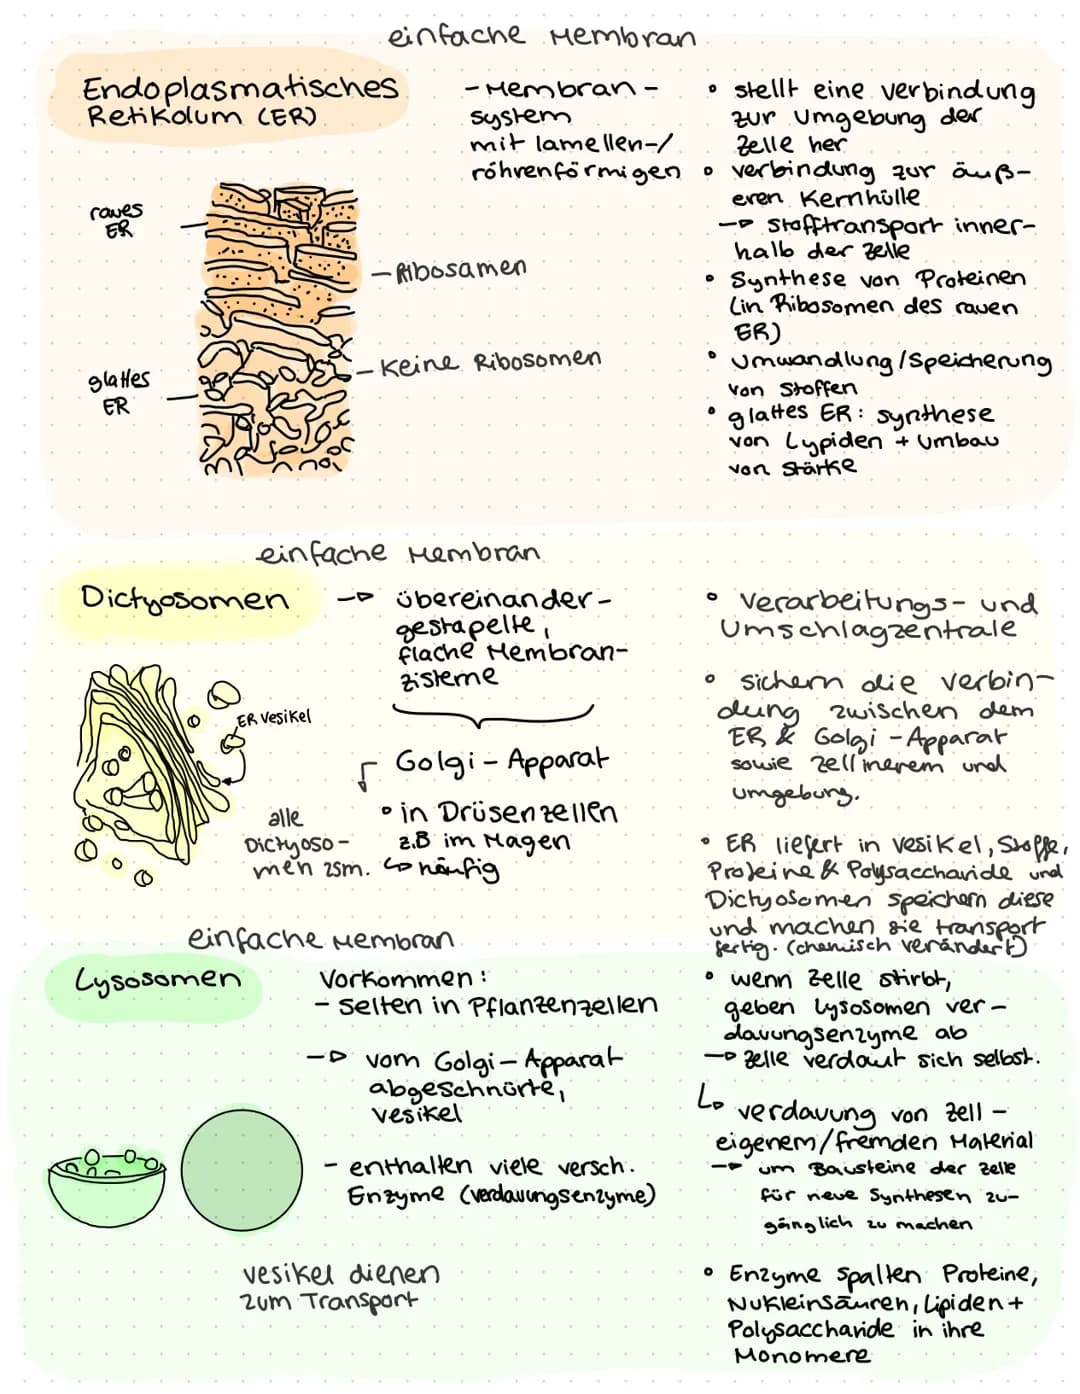 einfache Membran
Endoplasmatisches
Retikolum (ER)
- Membran-
system
mit lamellen-/
röhrenförmigen
raues
ER
- Ribosamen
- Keine Ribosomen
glattes
ER
• stellt eine verbindung
zur Umgebung der
Zelle her
• verbindung zur äuß-
eren Kernhülle
→ Stofftransport inner-
halb der Zelle
• Synthese von Proteinen
(in Ribosomen des rauen
ER)
• Umwandlung/Speicherung
von Stoffen
• glattes ER: synthese
von Lypiden + Umbau
von Stärke
einfache Membran
Dictyosomen
→ übereinander-
gestapelte,
flache Membran-
zisterne
ER Vesikel
Golgi-Apparat
• in Drüsenzellen
z.B im Magen
↳ häufig
alle
Dictyoso-
men zsm.
• Verarbeitungs- und
Umschlagzentrale
• sichern die verbin-
dung zwischen dem
ER & Golgi-Apparat
sowie zellinerem und
umgebung.
• ER liefert in vesikel, Stoffe,
Proteine & Polysaccharide und
Dictyosomen speichern diese
und machen sie transport
fertig. (chemisch verändert)
einfache Membran
Lysosomen
Vorkommen:
- selten in Pflanzenzellen
→ vom Golgi-Apparat
abgeschnürte,
vesikel
- enthalten viele versch.
Enzyme (verdauungsenzyme)
vesikel dienen
zum Transport
• wenn Zelle stirbt,
geben Lysosomen ver-
dauungsenzyme ab
→ Zelle verdaut sich selbst.
↳ verdauung von Zell-
eigenem/fremden Material
→ um Bausteine der Zelle
für neue Synthesen zu-
gänglich zu machen
• Enzyme spalten Proteine,
Nukleinsäuren, Lipiden +
Polysaccharide in ihre
Monomere